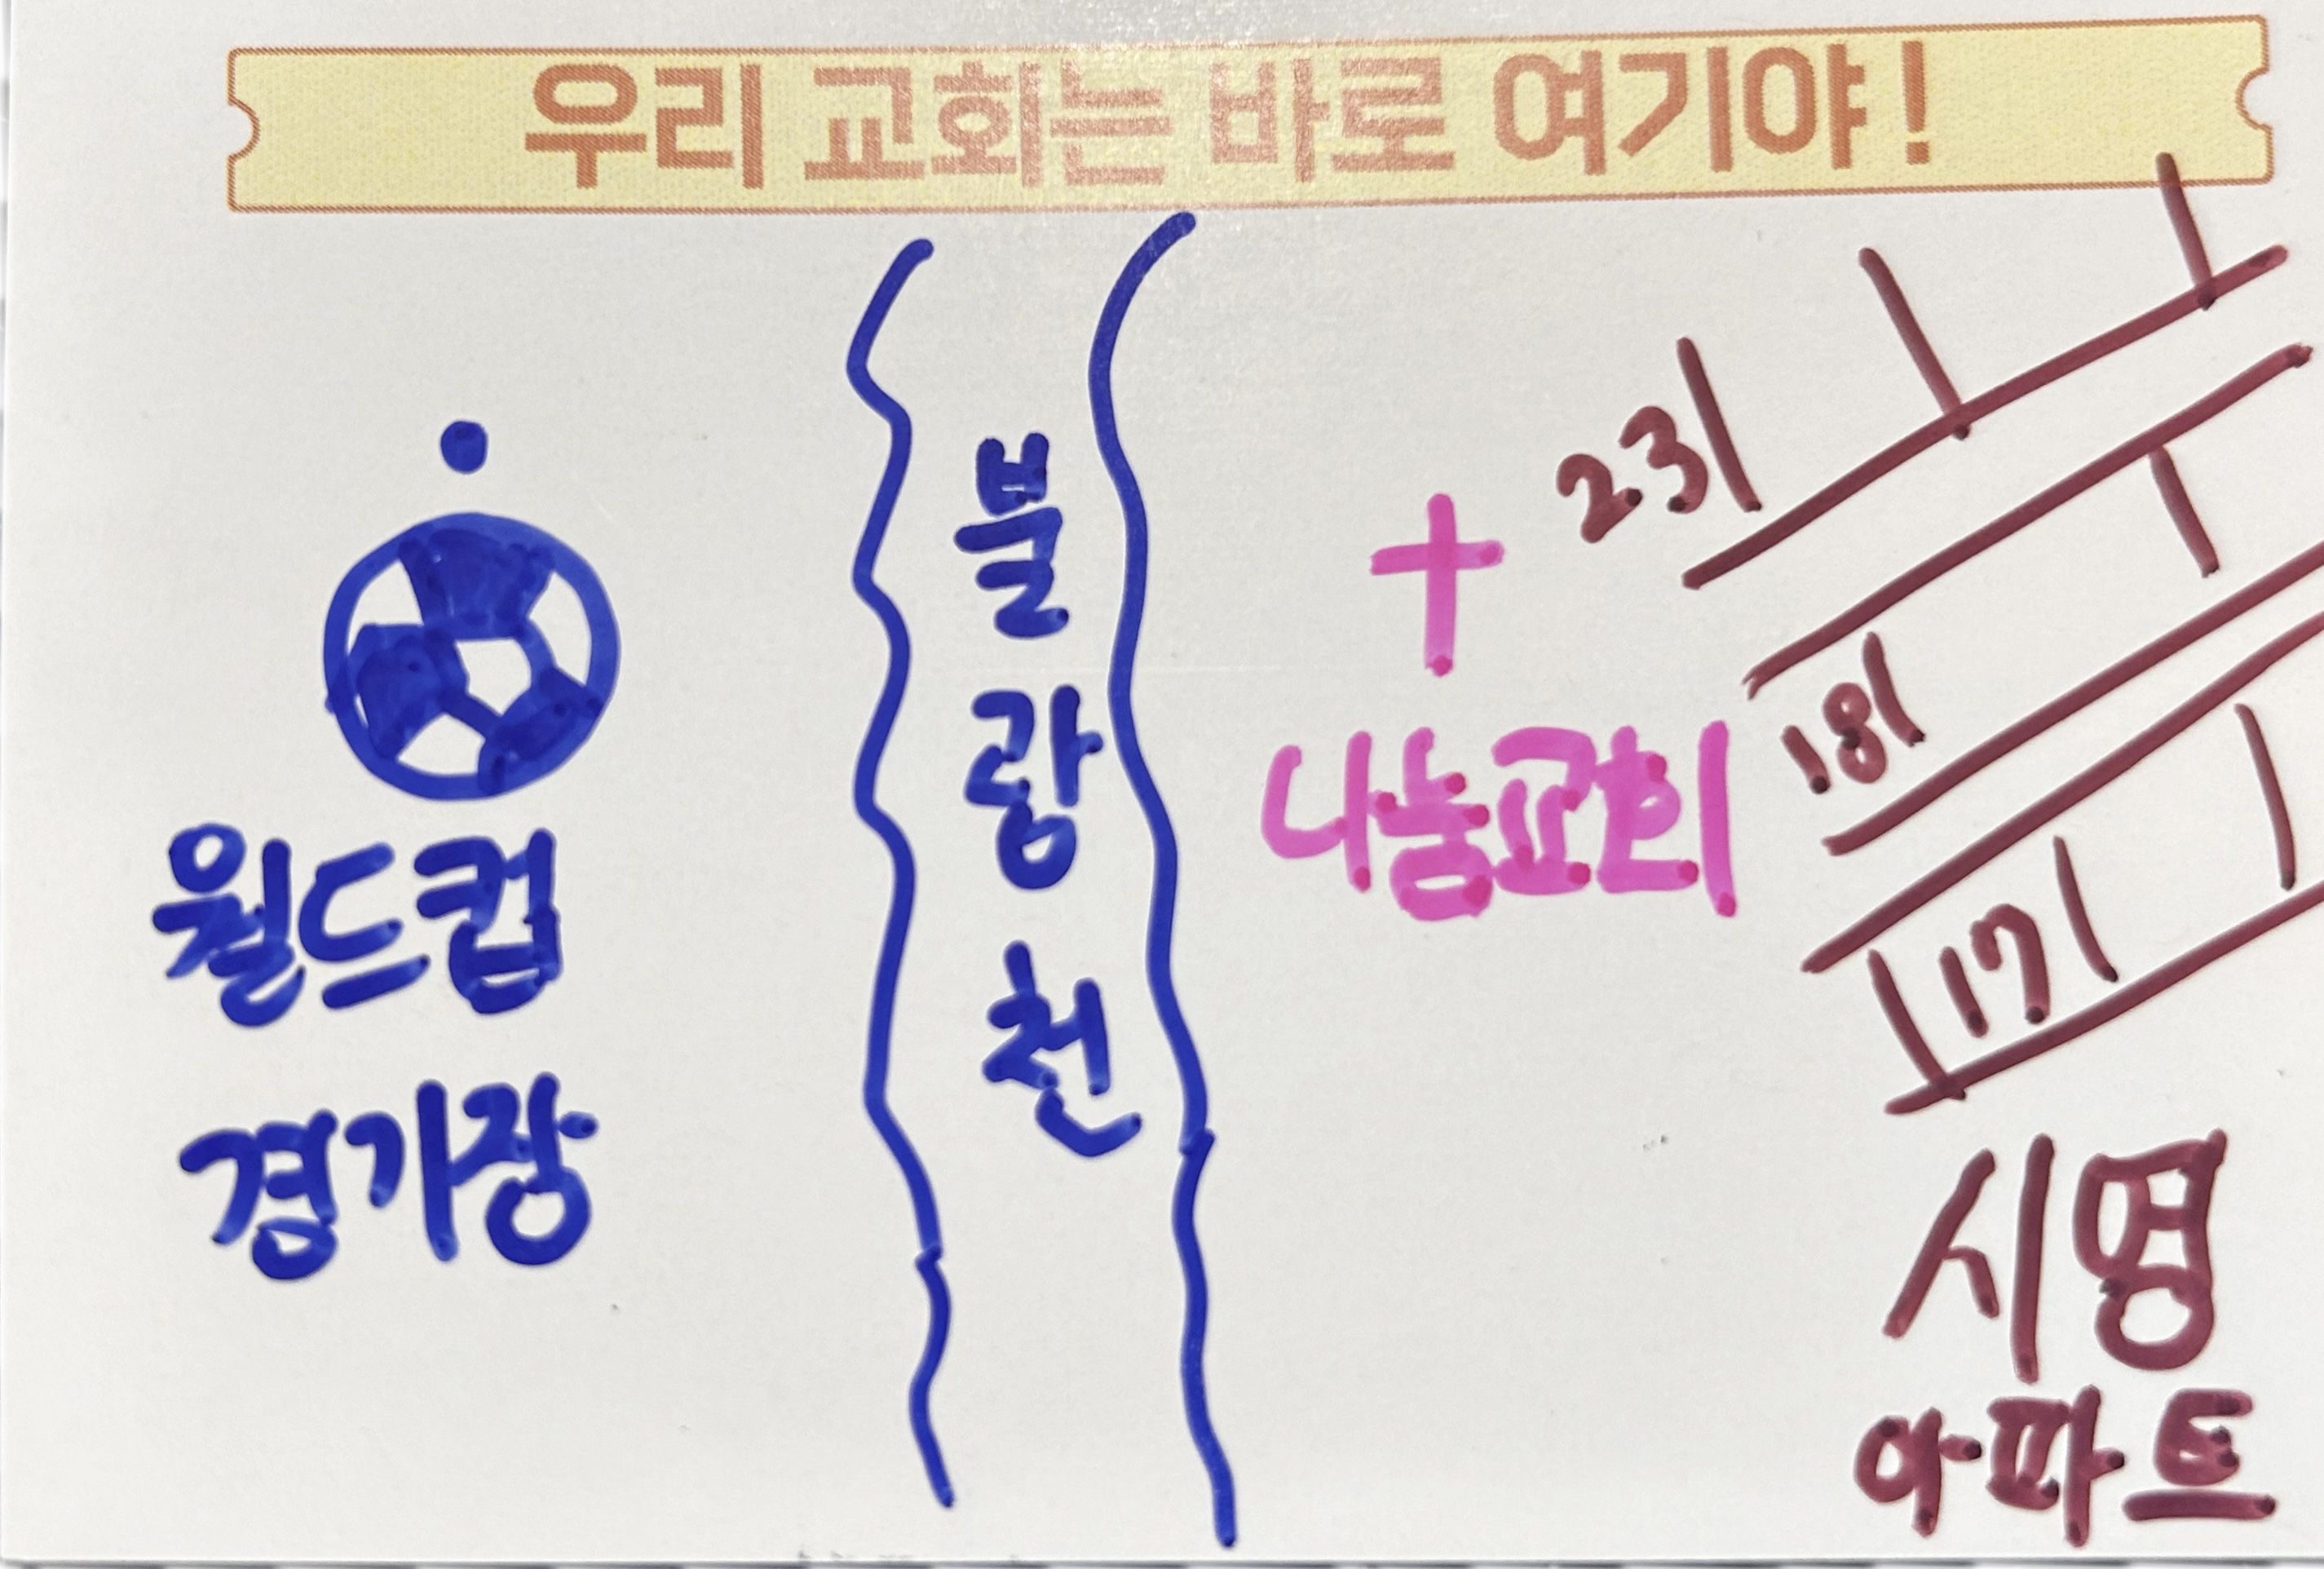 우리 교회는 바로 여기야!
월드컵
경기장
불광천
나눔교회
23
18
17
시영
아파트